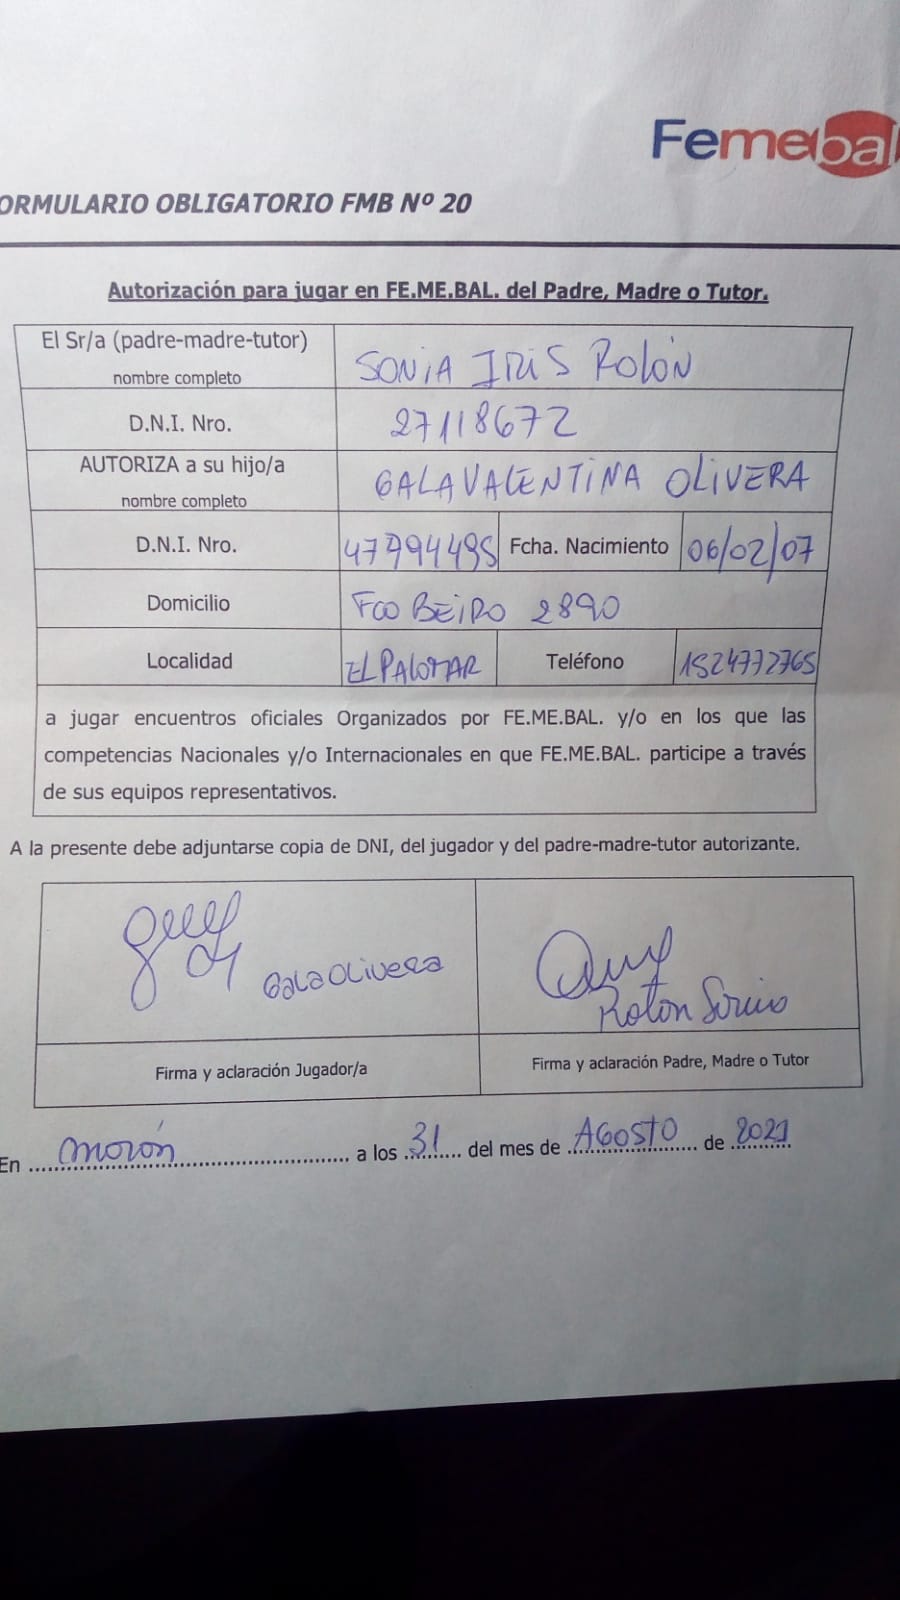 Femebal
ORMULARIO OBLIGATORIO FMB Nº 20
Autorización para jugar en FE.ME.BAL. del Padre, Madre o Tutor.
El Sr/a (padre-madre-tutor)
nombre completo
SONIA IRIS ROLÓN
D.N.I. Nro.
27118672
AUTORIZA a su hijo/a
nombre completo
GALA VALENTINA OLIVERA
D.N.I. Nro.
Fcha. Nacimiento 06/02/07
Domicilio FCO BEIRO 2890
Localidad EL PALOMAR Teléfono 1524772765
a jugar encuentros oficiales Organizados por FE.ME.BAL. y/o en los que las
competencias Nacionales y/o Internacionales en que FE.ME.BAL. participe a través
de sus equipos representativos.
A la presente debe adjuntarse copia de DNI, del jugador y del padre-madre-tutor autorizante.
Gala Olivera
Rolon Sonia
Firma y aclaración Jugador/a
Firma y aclaración Padre, Madre o Tutor
En morón a los 31 del mes de AGOSTO de 2021